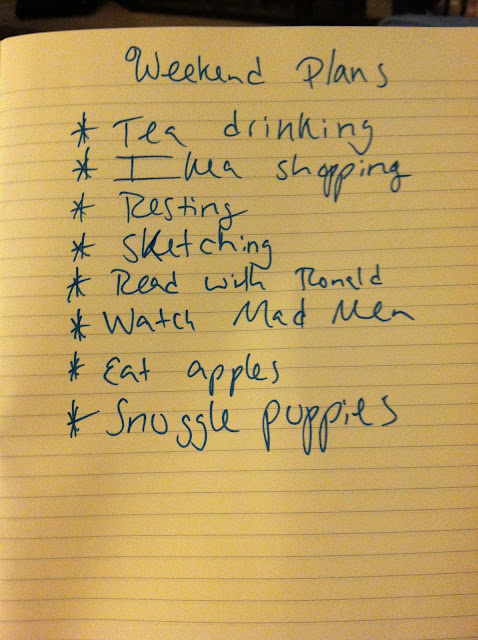 Weekend Plans
* Tea drinking
* Ikea shopping
* Resting
* Sketching
* Read with Ronald
* Watch Mad Men
* Eat apples
* Snuggle puppies